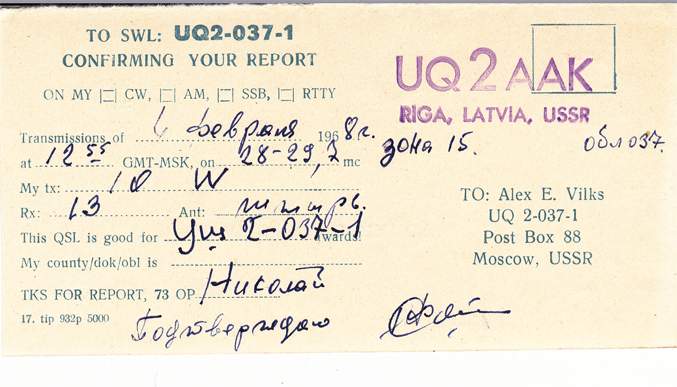 TO SWL: UQ2-037-1
CONFIRMING YOUR REPORT
ON MY CW, AM, SSB, RTTY
Transmissions of 6 февраля 1968г.
at 12 55 GMT-MSK, on 28-29,7 mc
My tx: 10 W
Rx: 13 Ant:
This QSL is good for УЩ 2-037-1 awards!
My county/dok/obl is
TKS FOR REPORT, 73 OP Николай
17. tip 932p 5000
Подтверждаю
UQ2AAK
RIGA, LATVIA, USSR
зона 15. обл 037.
TO: Alex E. Vilks
UQ 2-037-1
Post Box 88
Moscow, USSR